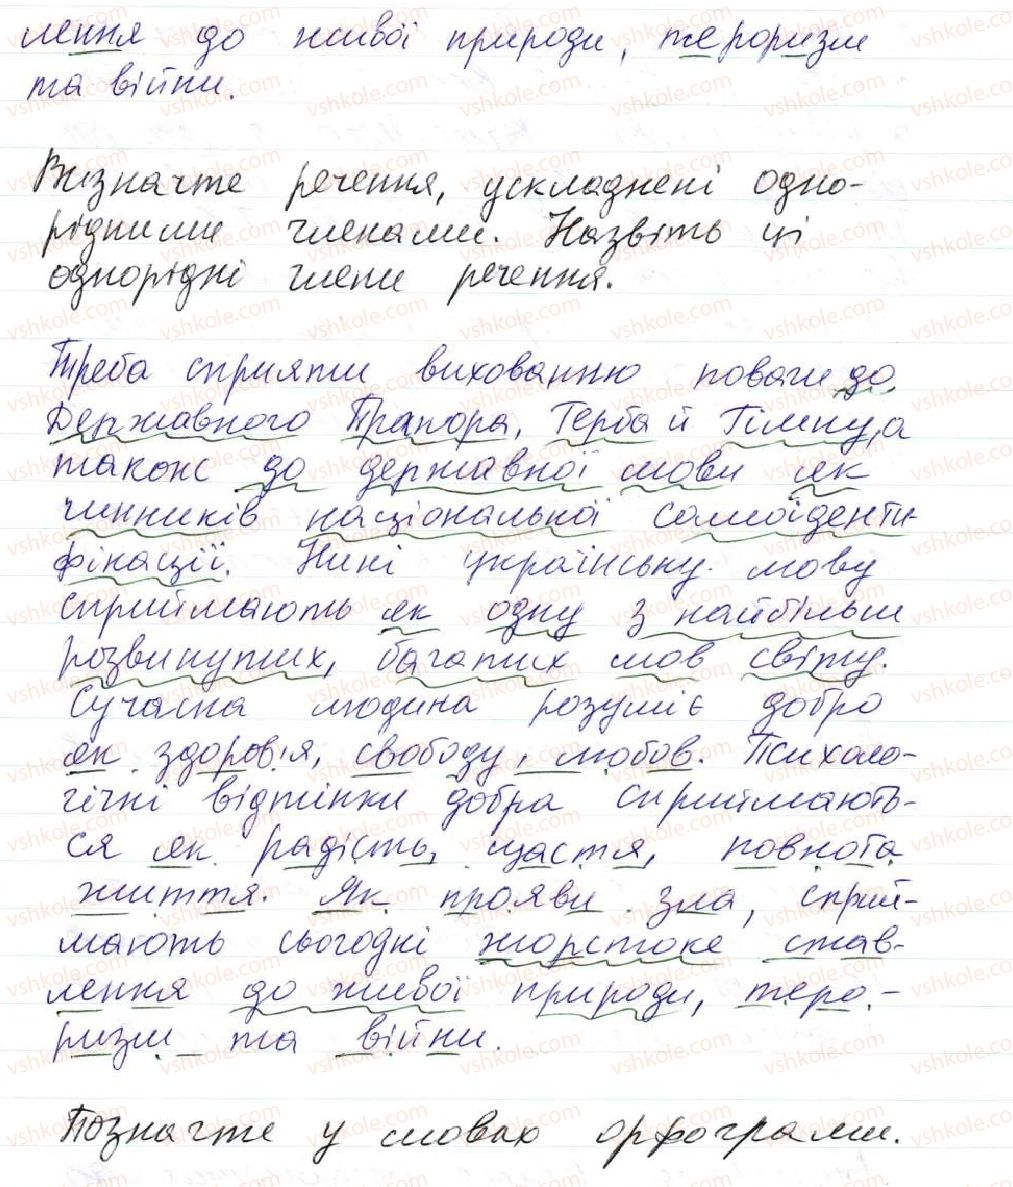 лення до живої природи, тероризм
та війни.
Визначте речення, ускладнені одно-
рідними членами. Назвіть ці
однорідні члени речення.
Треба сприяти вихованню поваги до
Державного Прапора, Герба й Гімну, а
також до державної мови як
чинників національної самоіденти-
фікації. Нині українську мову
сприймають як одну з найбільш
розвинутих, багатих мов світу.
Сучасна людина розуміє добро
як здоров'я, свободу, любов. Психоло-
гічні відтінки добра сприймають-
ся як радість, щастя, повнота
життя. Як прояви зла, сприй-
мають сьогодні жорстоке став-
лення до живої природи, теро-
ризм та війни.
Позначте у словах орфограми.